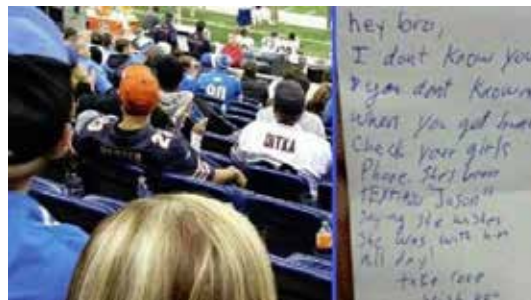 DITKA
hey bro,
I dont know you
& you dont know m
When you get home
Check your girls
Phone. She's been
TEXTING "Jason"
Saying she wishes
She was with him
All day!
take care